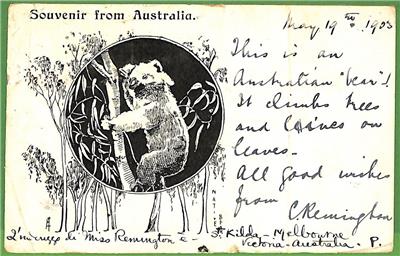 Souvenir from Australia.
May 19th. 1903
This is an
Australian "bear"!
It climbs trees
and lives on
leaves.
All good wishes
from C Remington
L'indirizzo di Miss Remington è - St Kilda - Melbourne
Victoria - Australia. P.